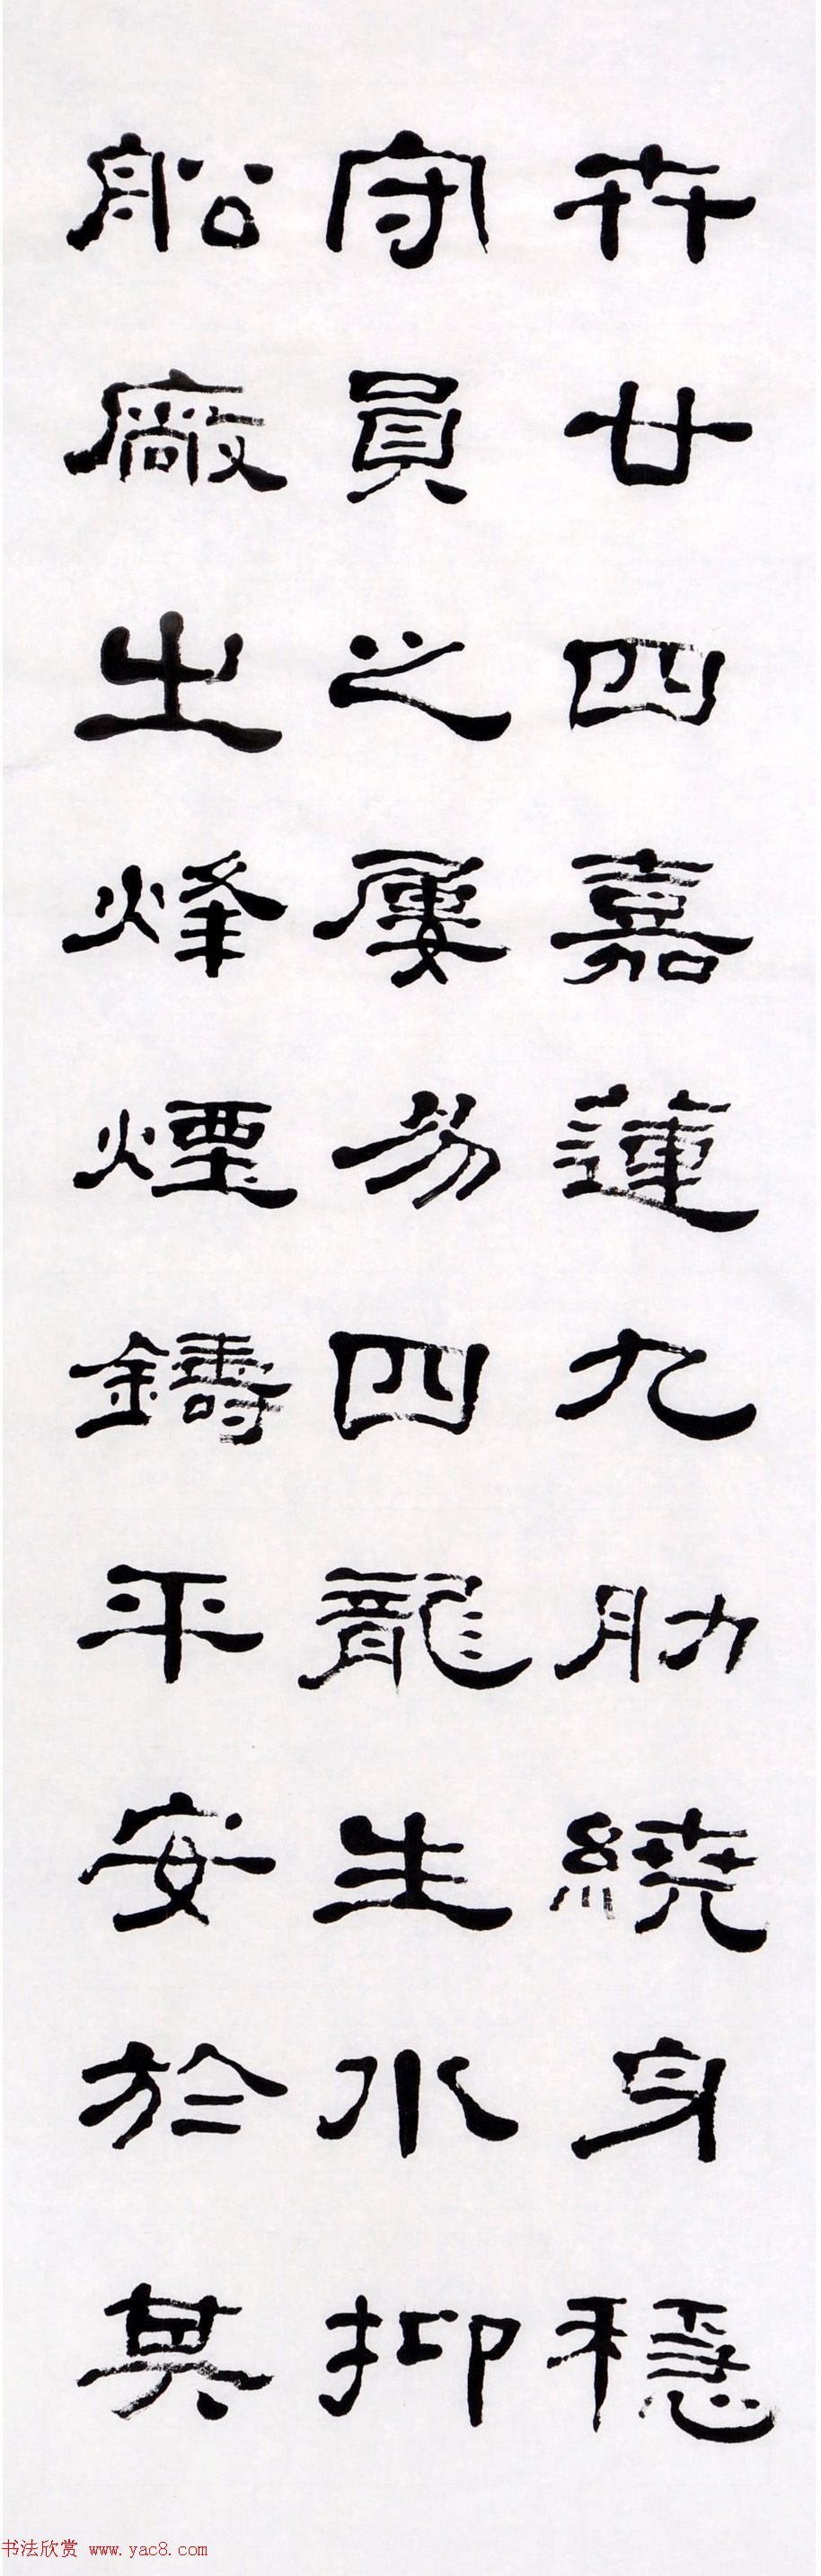 卉廿四嘉蓮九肋繞身穩
守員之屢㔟四龍生水抑
船廠出烽煙鑄平安於其
书法欣赏 www.yac8.com